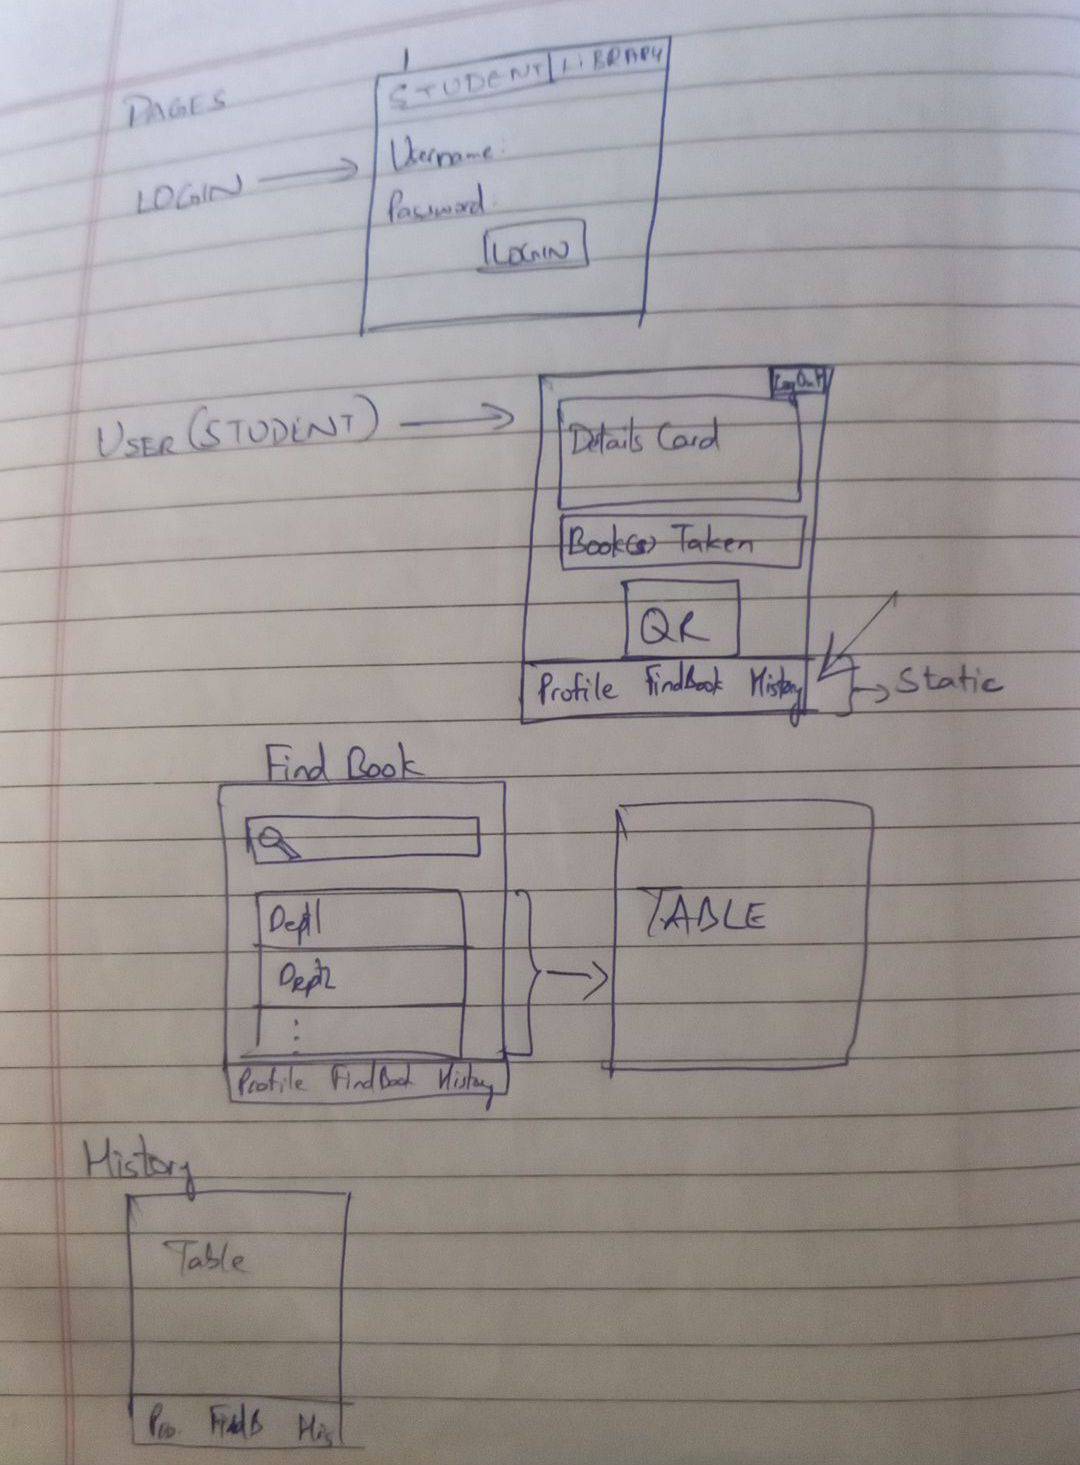 PAGES
STUDENT LIBRARY
LOGIN
Username:
Password:
LOGIN
USER (STUDENT)
Log Out
Details Card
Book(s) Taken
QR
Profile FindBook History
Static
Find Book
Dept1
Dept2
⋮
TABLE
Profile FindBook History
History
Table
Pro. FindB His